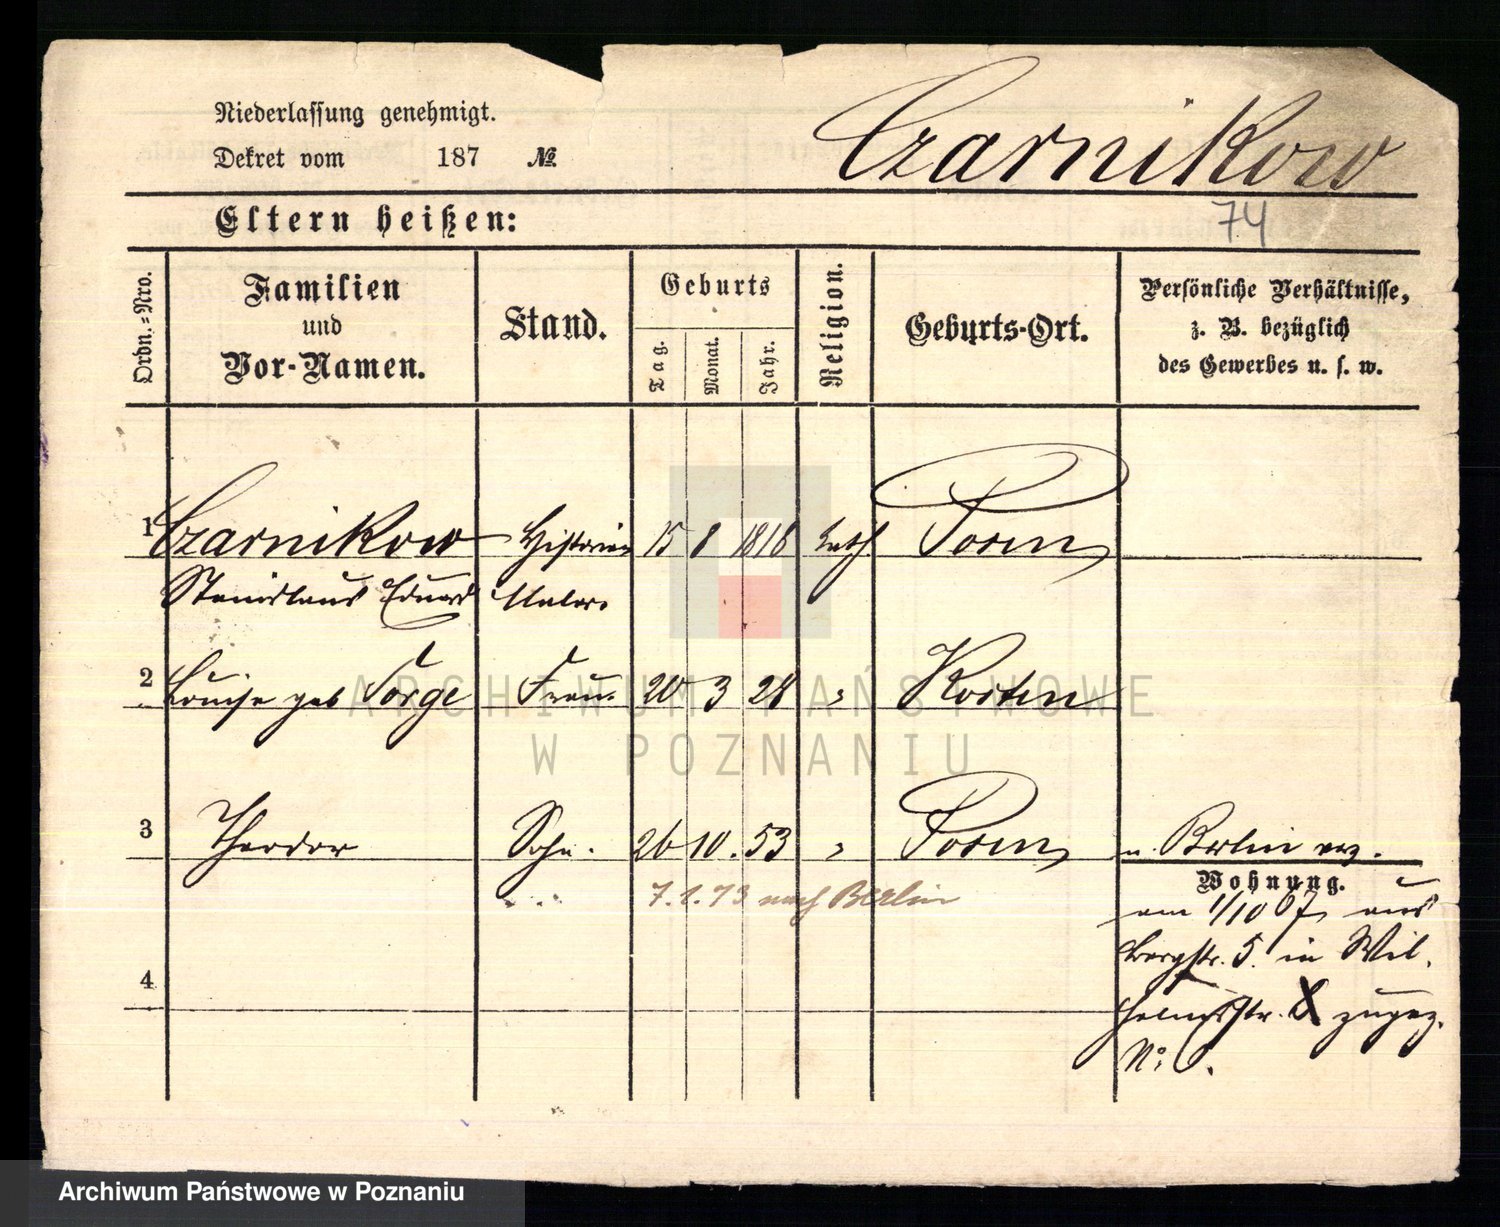 Niederlassung genehmigt.
Dekret vom 187 №
Czarnikow
Eltern heißen:
74
Ordn.-Nro.
Familien
und
Vor-Namen.
Stand.
Geburts
Tag.
Monat.
Jahr.
Religion.
Geburts-Ort.
Persönliche Verhältnisse,
z. B. bezüglich
des Gewerbes u. s. w.
1 Czarnikow Historien 15 8 1816 kath Posen
Stanislaus Eduard Maler.
2 Louise geb Sorge Frau. 20 3 28 " Kosten
ARCHIWUM PAŃSTWOWE
W POZNANIU
3 Theodor Sohn. 26 10. 53 " Posen n. Berlin verz.
7.1.73 nach Berlin
Wohnung.
am 1/10 67 aus
Bergstr. 5. in Wil.
4
helmsstr. 8 zugez.
No 6.
Archiwum Państwowe w Poznaniu